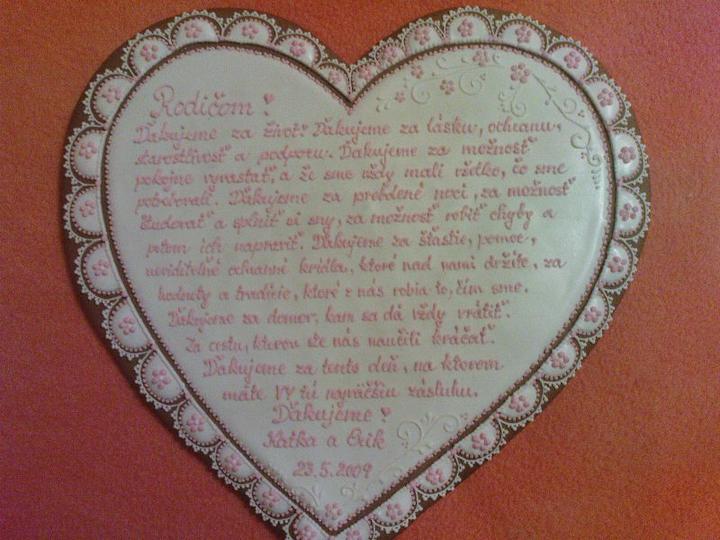 Rodičom!
Ďakujeme za život! Ďakujeme za lásku, ochranu,
starostlivosť a podporu. Ďakujeme za možnosť
pokojne vyrastať, a že sme vždy mali všetko, čo sme
potrebovali. Ďakujeme za prebdené noci, za možnosť
študovať a splniť si sny, za možnosť robiť chyby a
potom ich napraviť. Ďakujeme za šťastie, pomoc,
neviditeľné ochranné krídla, ktoré nad nami držíte, za
hodnoty a tradície, ktoré z nás robia to, čím sme.
Ďakujeme za domov, kam sa dá vždy vrátiť.
Za cestu, ktorou ste nás naučili kráčať.
Ďakujeme za tento deň, na ktorom
máte VY tú najväčšiu zásluhu.
Ďakujeme!
Katka a Erik
23.5.2009